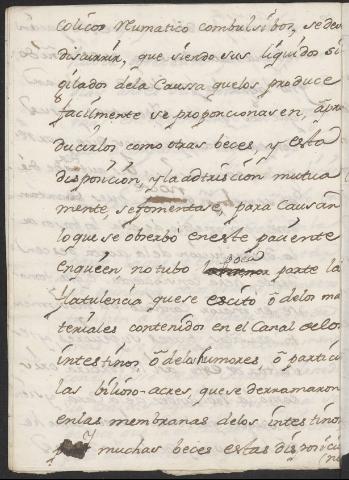 colicos Reumatico combulsibos, se deve
discurrir, que siendo sus liquidos si
gilados dela Caussa quelos produce
facilmente se proporcionasen, á pro
ducirlos como otras beces y esta
disposición, y la adtrisición mutua
mente, se fomentase, para Causar
lo que se obserbó en este paciente
Enquien no tubo poca parte la
flatulencia que se escito ó delos ma
teriales contenidos en el Canal delos
intestinos, ó delos humores ó particu
las bilioso-acres, que se derramaron
en las membranas delos intestinos
y muchas beces estas disposicio
(nes